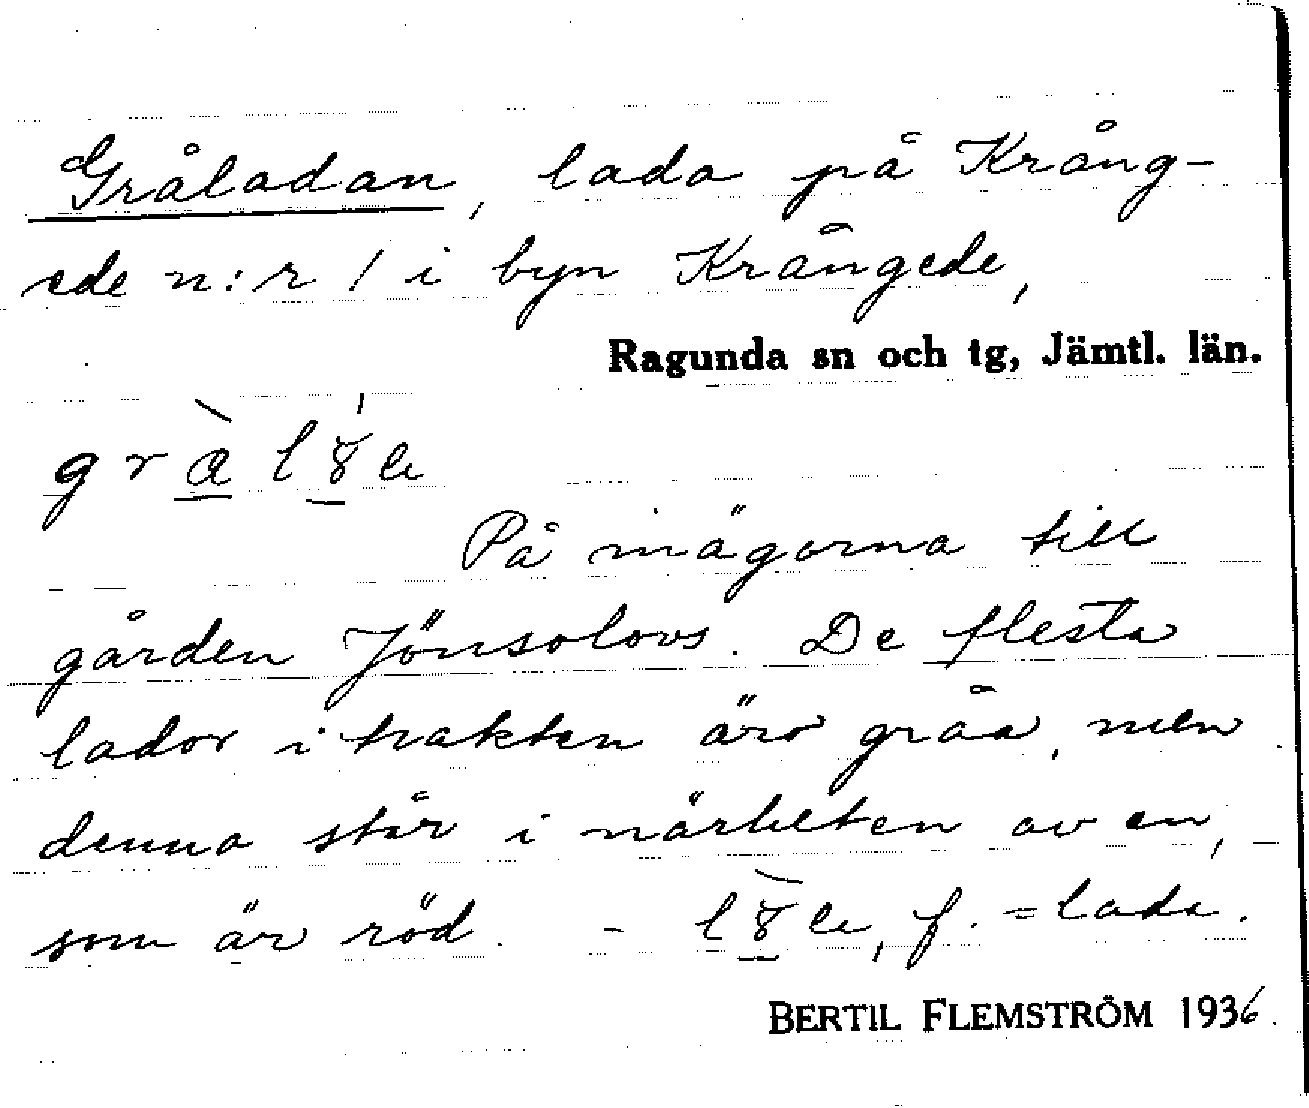 Gråladan, lada på Krång-
ede n:r 1 i byn Krångede,
Ragunda sn och tg, Jämtl. län.
På inägorna till
gården Jönsolovs. De flesta
lador i trakten äro gråa, men
denna står i närheten av en,
som är röd. - f. = lada.
BERTIL FLEMSTRÖM 1936.